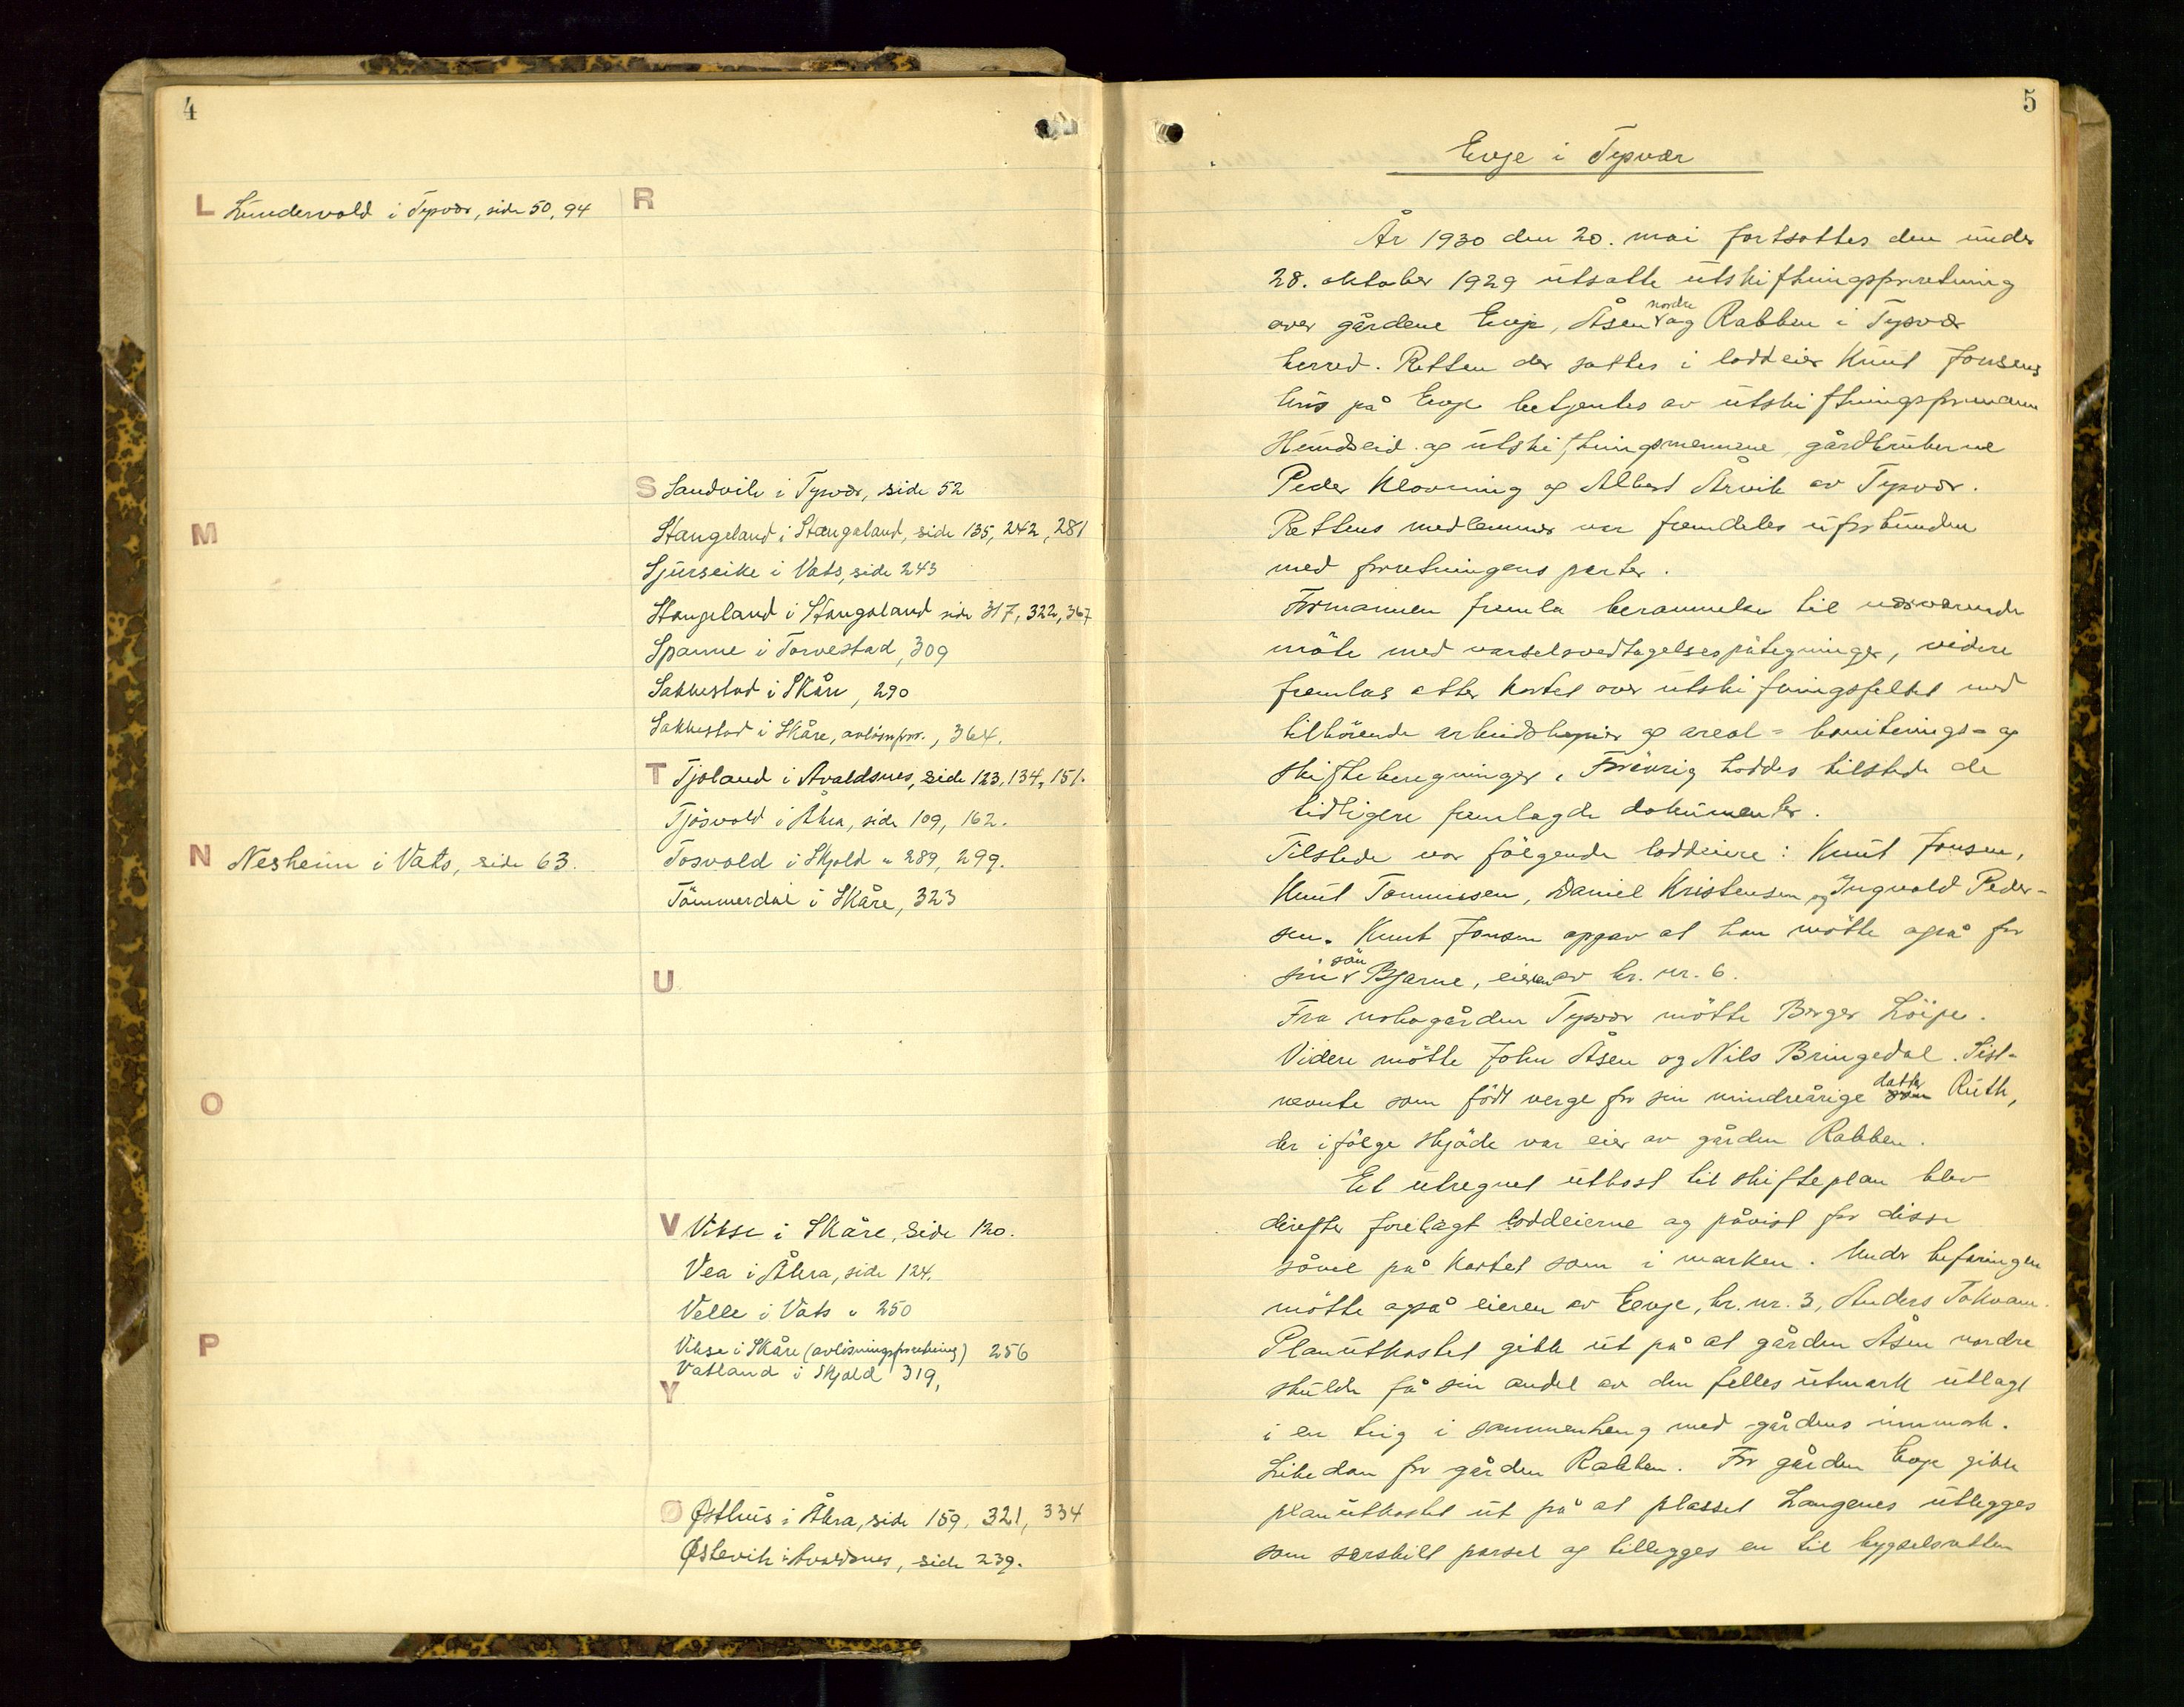 4
L Lundervold i Tysvær, side 50, 94
M
N Nesheim i Vats, side 63.
O
P
R
S Sandvik i Tysvær, side 52
Stangeland i Stangaland, side 135, 242, 281
Sjurseike i Vats, side 243
Stangeland i Stangaland side 317, 322, 367
Spanne i Torvestad, 309
Sakkestad i Skåre, 290
Sakkestad i Skåre, avløsn.forr., 364.
T Tjoland i Avaldsnes, side 123, 134, 151.
Tjösvold i Åkra, side 109, 162.
Tosvold i Skjold " 289, 299.
Tömmerdal i Skåre, 323
U
V Vikse i Skåre, side 120.
Vea i Åkra, side 124.
Velle i Vats " 250
Vikse i Skåre (avløsningsforretning) 256
Vatland i Skjold 319,
Y
Ø Østhus i Åkra, side 159, 321, 334
Østevik i Avaldsnes, side 239.
5
Evje i Tysvær
År 1930 den 20. mai fortsattes den under
28. oktober 1929 utsatte utskiftningsforretning
over gårdene Evje, Åsen nordre og Rabben i Tysvær
herred. Retten der sattes i loddeier Knut Jonsens
hus på Evje betjentes av utskiftningsformann
Hundseid og utskiftningsmennene, gårdbrukerne
Peder Klovning og Albert Årvik av Tysvær.
Rettens medlemmer var fremdeles uforbunden
med forretningens parter.
Formannen fremla berammelse til nærværende
möte med varselsvedtagelsespåtegninger, videre
fremlas etter kartet over utskiftningsfeltet med
tilhörende arbeidskopier og areal- boniterings- og
skifteberegninger. Forövrig haddes tilstede de
tidligere fremlagde dokumenter.
Tilstede var fölgende loddeiere: Knut Jonsen,
Knut Tommissen, Daniel Kristensen og Ingvald Peder-
sen. Knut Jonsen opgav at han mötte også for
sin sön Bjarne, eieren av br. nr. 6.
Fra nabogården Tysvær mötte Berger Löipe.
Videre mötte John Åsen og Nils Bringedal. Sist-
nevnte som födt verge for sin mindreårige sön datter Ruth,
der ifölge skjöde var eier av gården Rabben.
Et utregnet utkast til skifteplan blev
derefter forelagt loddeierne og påvist for disse
såvel på kartet som i marken. Under befaringen
mötte også eieren av Evje, br. nr. 3, Anders Tokvam.
Planutkastet gikk ut på at gården Åsen nordre
skulde få sin andel av den felles utmark utlagt
i en teig i sammenheng med gårdens innmark.
Likedan for gården Rabben. For gården Evje gikk
planutkastet ut på at plassel Langenes utlegges
som særskilt parsel og tillegges en til bygselsretten